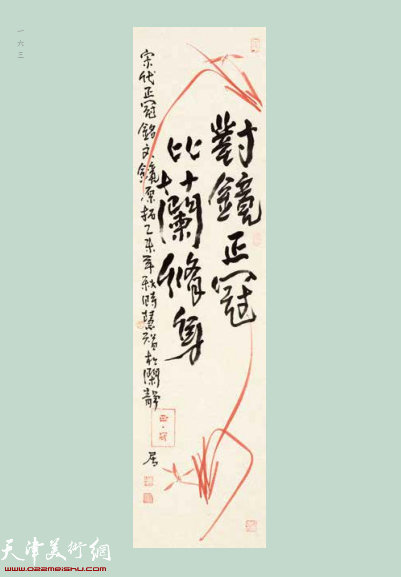 一六三
對鏡正冠
比蘭脩身
宋代正冠銘文鏡原拓乙未年秋時慧智於蘭靜
居
正冠
天津美術網
www.022meishu.com